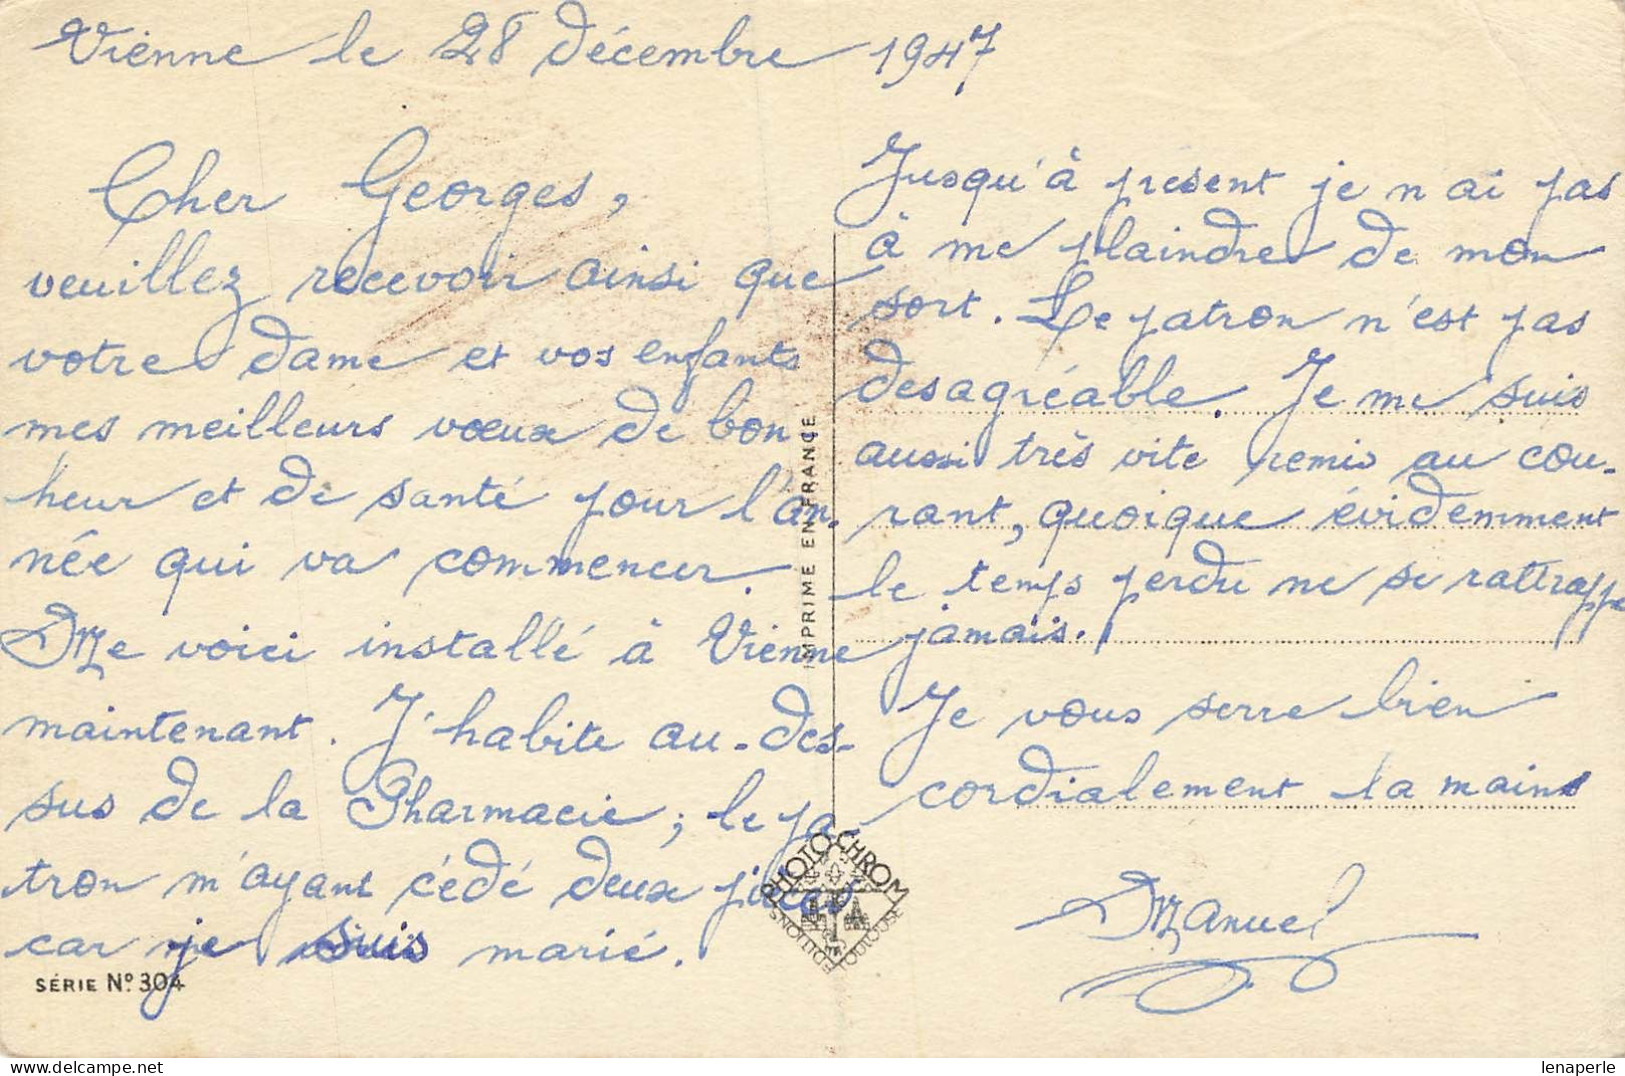 Vienne le 28 décembre 1947
Cher Georges,
veuillez recevoir ainsi que
votre dame et vos enfants
mes meilleurs vœux de bon
heur et de santé pour l'an-
née qui va commencer.
Me voici installé à Vienne
maintenant. J'habite au-des-
sus de la Pharmacie ; le pa-
tron m'ayant cédé deux pièces
car je suis marié.
SÉRIE Nº 304
IMPRIME EN FRANCE
PHOTOCHROM
EDITIONS
TOULOUSE
Jusqu'à présent je n ai pas
à me plaindre de mon
sort. Le patron n'est pas
desagréable. Je me suis
aussi très vite remis au cou-
rant, quoique évidemment
le temps perdu ne se rattrappe
jamais.
Je vous serre bien
cordialement la mains
Manuel
lenaperle